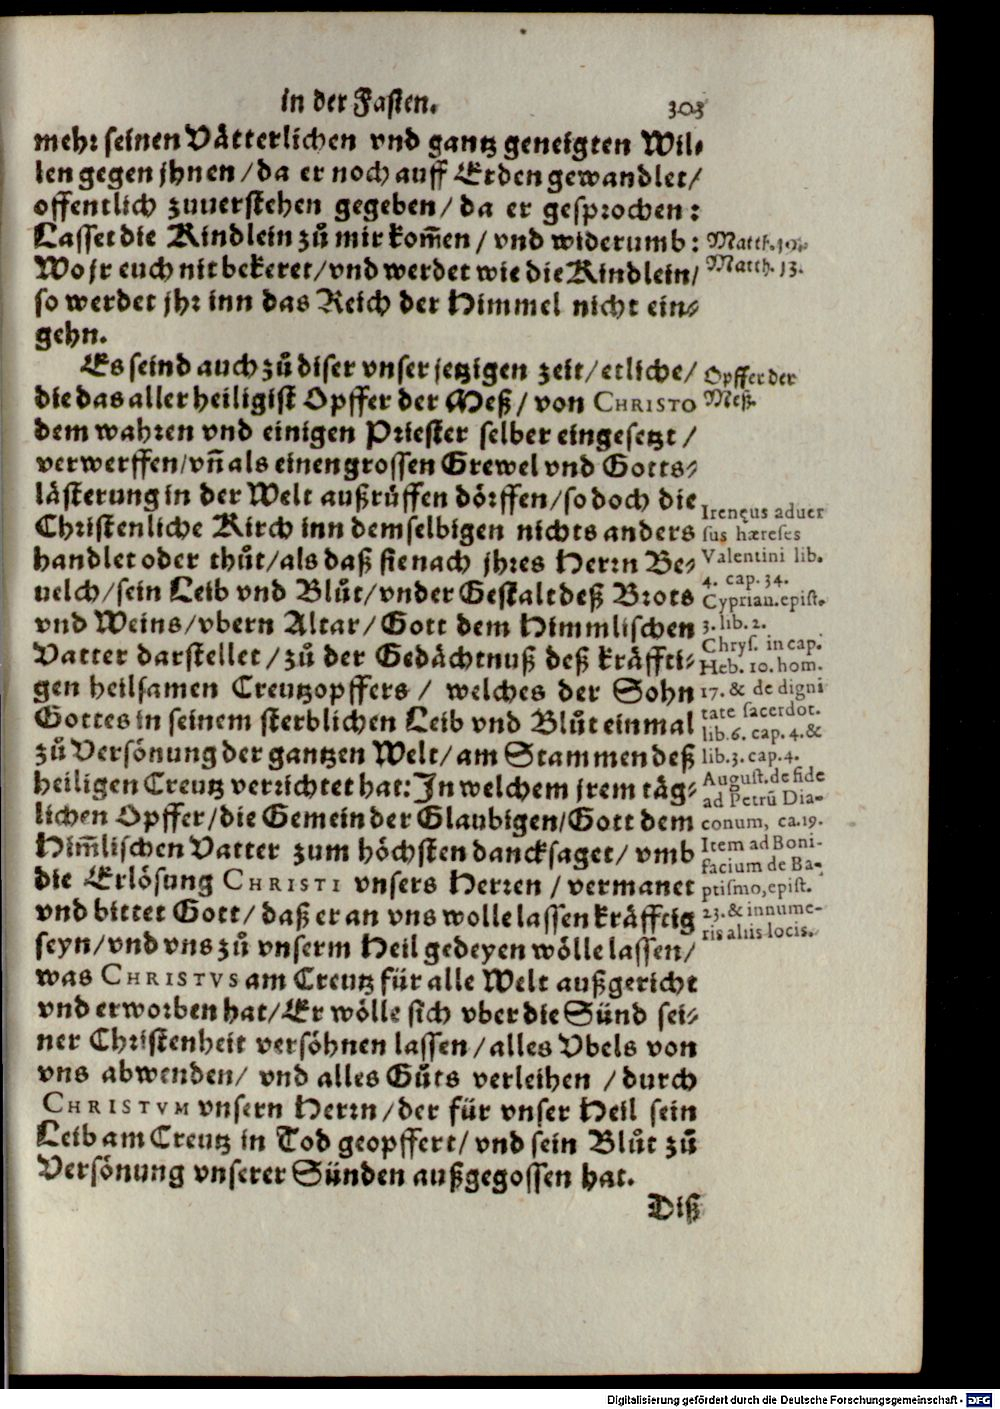 in der Fasten. 303
mehr seinen Våtterlichen vnd gantz geneigten Wil-
len gegen jhnen / da er noch auff Erden gewandlet /
offentlich zuuerstehen gegeben / da er gesprochen :
Lasset die Kindlein zů mir kom̃en / vnd widerumb :
Wo jr euch nit bekeret / vnd werdet wie die Kindlein /
so werdet jhr inn das Reich der Himmel nicht ein-
gehn.
Es seind auch zů diser vnser jetzigen zeit / etliche /
die das allerheiligist Opffer der Meß / von CHRISTO
dem wahren vnd einigen Priester selber eingesetzt /
verwerffen / vñ als einen grossen Grewel vnd Gotts-
låsterung in der Welt außrůffen dörffen / so doch die
Christenliche Kirch inn demselbigen nichts anders
handlet oder thůt / als daß sie nach jhres Herrn Be-
uelch / sein Leib vnd Blůt / vnder Gestalt deß Brots
vnd Weins / vbern Altar / Gott dem Himmlischen
Vatter darstellet / zů der Gedåchtnuß deß kråffti-
gen heilsamen Creutzopffers / welches der Sohn
Gottes in seinem sterblichen Leib vnd Blůt einmal
zů Versönung der gantzen Welt / am Stammen deß
heiligen Creutz verrichtet hat: In welchem jrem tåg-
lichen Opffer / die Gemein der Glaubigen / Gott dem
Him̃lischen Vatter zum höchsten dancksaget / vmb
die Erlösung CHRISTI vnsers Herren / vermanet
vnd bittet Gott / daß er an vns wolle lassen kråfftig
seyn / vnd vns zů vnserm Heil gedeyen wölle lassen /
was CHRISTVS am Creutz für alle Welt außgericht
vnd erworben hat / Er wölle sich vber die Sünd sei-
ner Christenheit versöhnen lassen / alles Vbels von
vns abwenden / vnd alles Gůts verleihen / durch
CHRISTVM vnsern Herrn / der für vnser Heil sein
Leib am Creutz in Tod geopffert / vnd sein Blůt zů
Versönung vnserer Sünden außgegossen hat.
Diß
Matth. 19.
Matth. 13.
Opffer der
Meß.
Irenęus aduer
sus hæreses
Valentini lib.
4. cap. 34.
Cyprian. epist.
3. lib. 2.
Chrys. in cap.
Heb. 10. hom.
17. & de digni
tate sacerdot.
lib. 6. cap. 4. &
lib. 3. cap. 4.
August. de fide
ad Petrũ Dia-
conum, ca. 19.
Item ad Boni-
facium de Ba-
ptismo, epist.
23. & innume-
ris aliis locis.
Digitalisierung gefördert durch die Deutsche Forschungsgemeinschaft - DFG